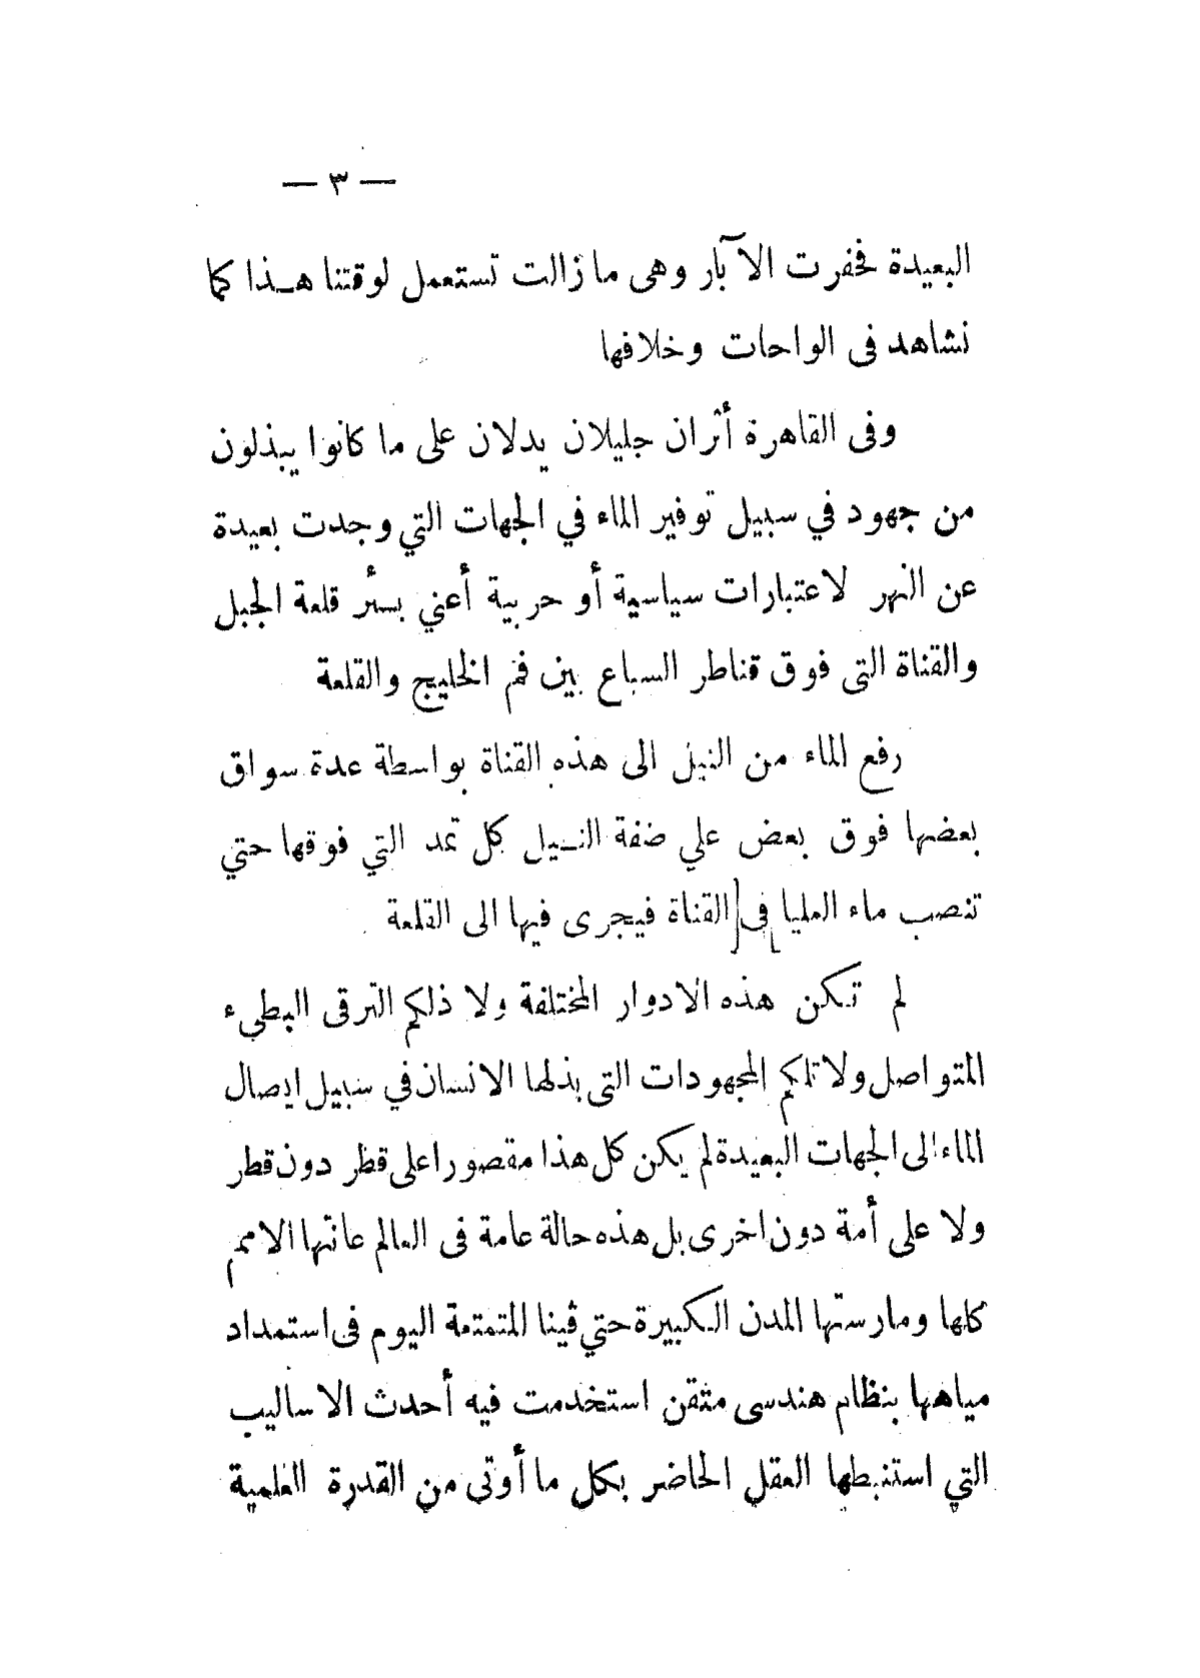 — ٣ —
البعيدة فحفرت الآبار وهى ما زالت تستعمل لوقتنا هـذا كما
نشاهد فى الواحات وخلافها
وفى القاهرة أثران جليلان يدلان على ما كانوا يبذلون
من جهود في سبيل توفير الماء في الجهات التي وجدت بعيدة
عن النهر لاعتبارات سياسية أو حربية أعني بئر قلعة الجبل
والقناة التى فوق قناطر السباع بين فم الخليج والقلعة
رفع الماء من النيل الى هذه القناة بواسطة عدة سواق
بعضها فوق بعض علي ضفة النـيل كل تمد التي فوقها حتي
تنصب ماء العليا فى القناة فيجرى فيها الى القلعة
لم تكن هذه الادوار المختلفة ولا ذلكم الترقى البطيء
المتواصل ولا تلكم المجهودات التى بذلها الانسان في سبيل ايصال
الماء الى الجهات البعيدة لم يكن كل هذا مقصورا على قطر دون قطر
ولا على أمة دون اخرى بل هذه حالة عامة فى العالم عانتها الامم
كلها ومارستها المدن الكبيرة حتي ڤينا المتمتعة اليوم فى استمداد
مياهها بنظام هندسى متقن استخدمت فيه أحدث الاساليب
التي استنبطها العقل الحاضر بكل ما أوتى من القدرة العلمية